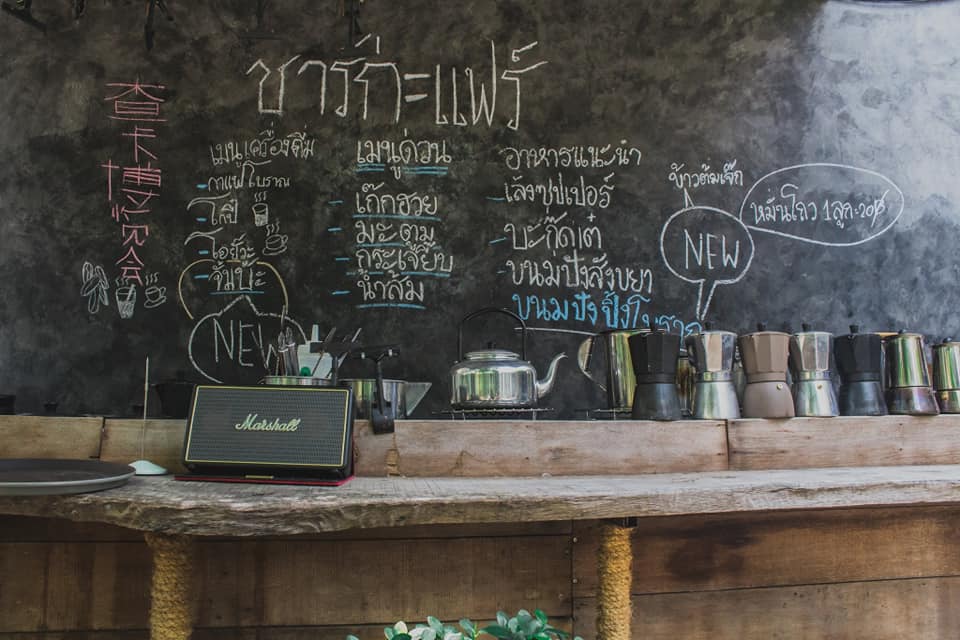 ชาร์ก่ะแฟร์
查
卡
博
览
会
เมนูเครื่องดื่ม
- กาแฟโบราณ
- โกปี๊
- โอยัวะ
- จ้ำบ๊ะ
NEW
เมนูด่วน
- เก๊กฮวย
- มะตูม
- กระเจี๊ยบ
- น้ำส้ม
อาหารแนะนำ
- เล้งซุปเปอร์
- บะกี๊ดเต๋
- ขนมปังสังขยา
ขนมปังปิ้งโบราณ
ข้าวต้มเจ๊ก
NEW
หมั่นโถว 1 ลูก
Marshall